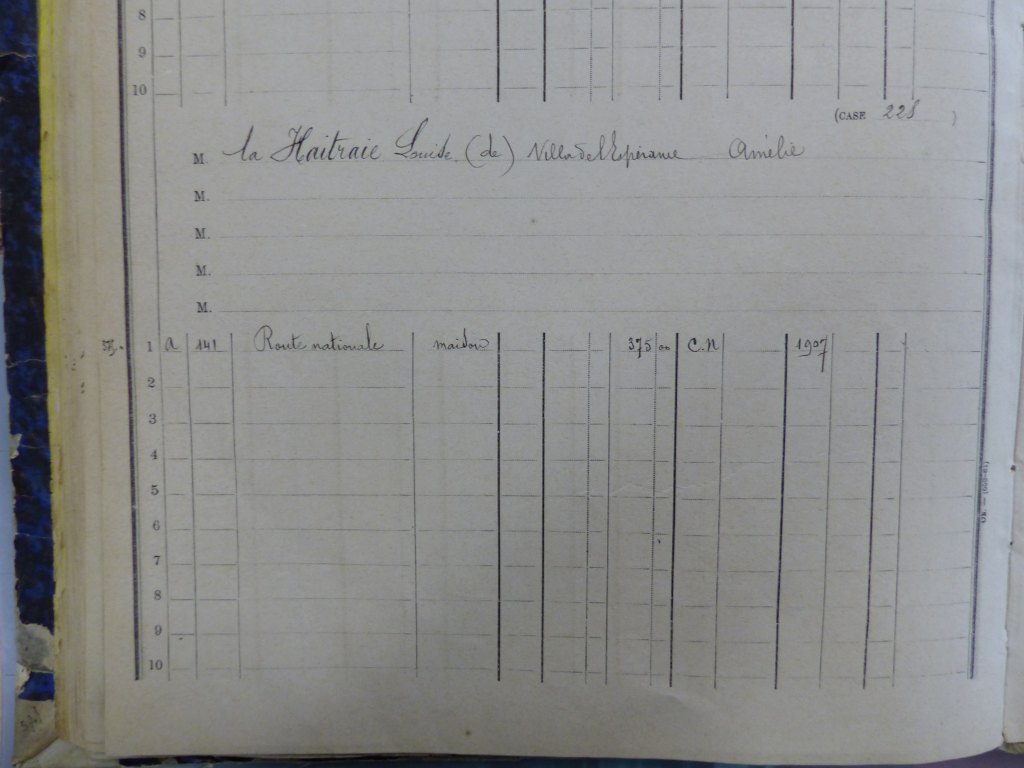 8
9
10
(CASE 228 )
M. la Haitraie Louise (de) Villa de l'Espérance Amélie
M.
M.
M.
M.
1 A 141 Route nationale maison 375 00 C.N 1907
2
3
4
5
6
7
8
9
10